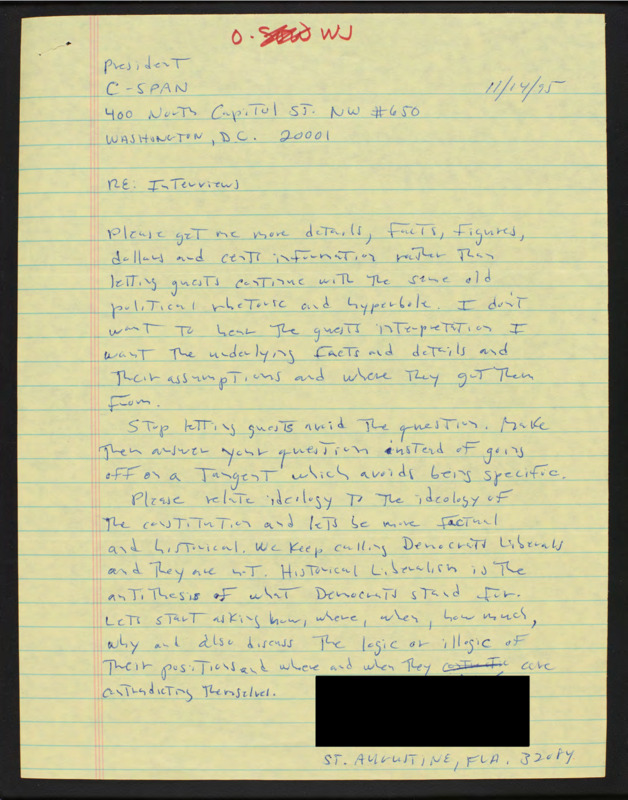 O. WJ
President
C-SPAN
11/14/95
400 North Capitol St. NW #650
Washington, D.C. 20001
RE: Interviews
Please get me more details, facts, figures,
dollars and cents information rather than
letting guests continue with the same old
political rhetoric and hyperbole. I don't
want to hear the guests interpretation I
want the underlying facts and details and
their assumptions and where they got them
from.
Stop letting guests avoid the question. Make
them answer your question instead of going
off on a tangent which avoids being specific.
Please relate ideology to the ideology of
the constitution and lets be more factual
and historical. We keep calling Democrats Liberals
and they are not. Historical Liberalism is the
antithesis of what Democrats stand for.
Lets start asking how, where, when, how much,
why and also discuss the logic or illogic of
their positions and where and when they are
contradicting themselves.
ST. AUGUSTINE, FLA. 32084